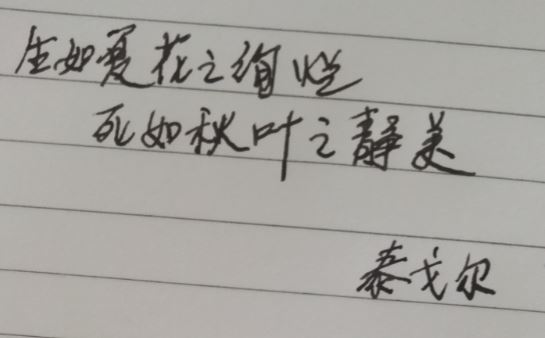 生如夏花之绚烂
死如秋叶之静美
泰戈尔